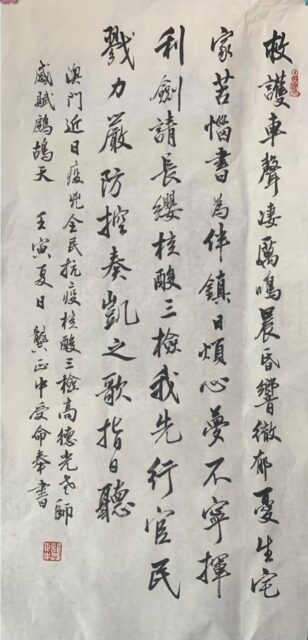 救護車聲淒厲鳴晨昏響徹郁憂生宅
家苦惱書為伴鎮日煩心夢不寧揮
利劍請長纓核酸三檢我先行官民
戮力嚴防控奏凱之歌指日聽
澳門近日疫兇全民抗疫核酸三檢高德光老師
感賦鷓鴣天 壬寅夏日龔正中受命奉書